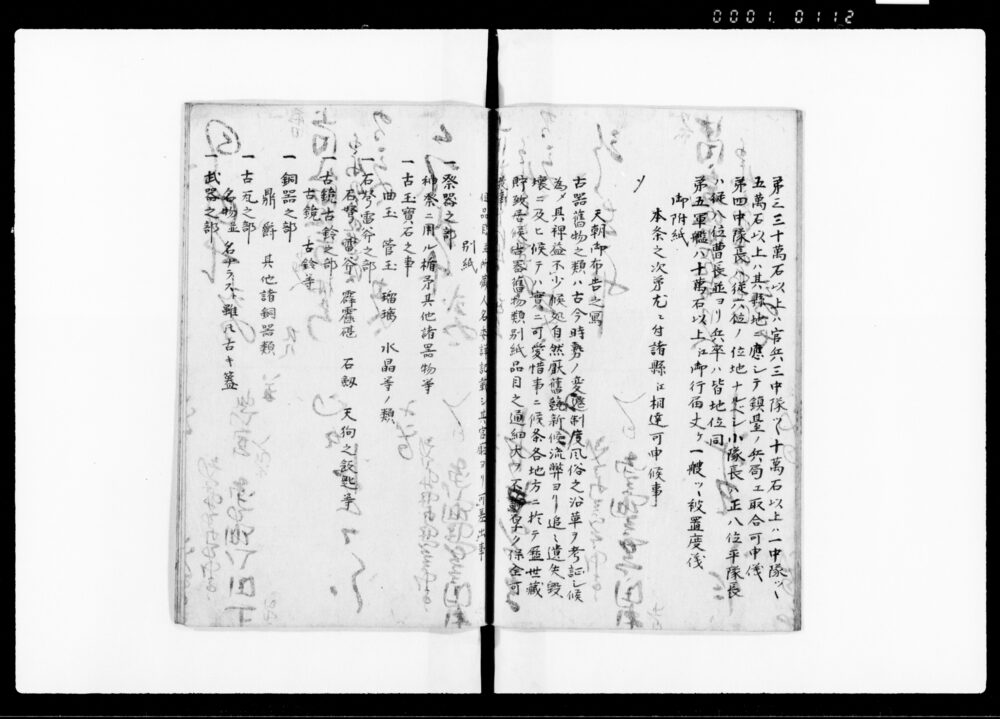 0001.0112
第三三十萬石以上ハ官兵三中隊ツヽ十萬石以上ハ一中隊ツヽ
五萬石以上ハ其縣地ニ應シテ鎮臺ノ兵局ェ取合可申儀
第四中隊長ハ従六位ノ位地ナルヘシ小隊長ハ正八位半隊長
ハ従八位曹長並ヨリ兵卒ハ皆地位同
第五軍艦ハ十萬石以上江御行届丈ケ一艘ツヽ被置度儀
御附紙
本条之次第尤ニ付諸縣江相達可申候事
天朝御布告之寫
古器舊物之類ハ古今時勢ノ変遷制度風俗之沿革ヲ考証シ候
為メ具裨益不少候処自然厭舊競新候流弊ヨリ追々遺失毀
壊ニ及ヒ候テハ實ニ可愛惜事ニ候条各地方ニ於テ歴世蔵
貯致居候古器舊物類別紙品目之通細大ヲ不論厚ク保全可
致事
但品目並所蔵人名委詳記載シ其官廳ヨリ可差出事
別紙
一祭器之部
神祭ニ用ル楯矛其他諸器物等
一古玉寶石之事
曲玉 管玉 瑠璃 水晶等ノ類
一石弩雷斧之部
石弩 雷斧 霹靂碪 石劔 天狗之飯匙等
一古鏡古鈴之部
古鏡 古鈴等
一銅器之部
鼎 爵 其他諸銅器類
一古瓦之部
名物並名ナラスト雖凡古キ盖
一武器之部